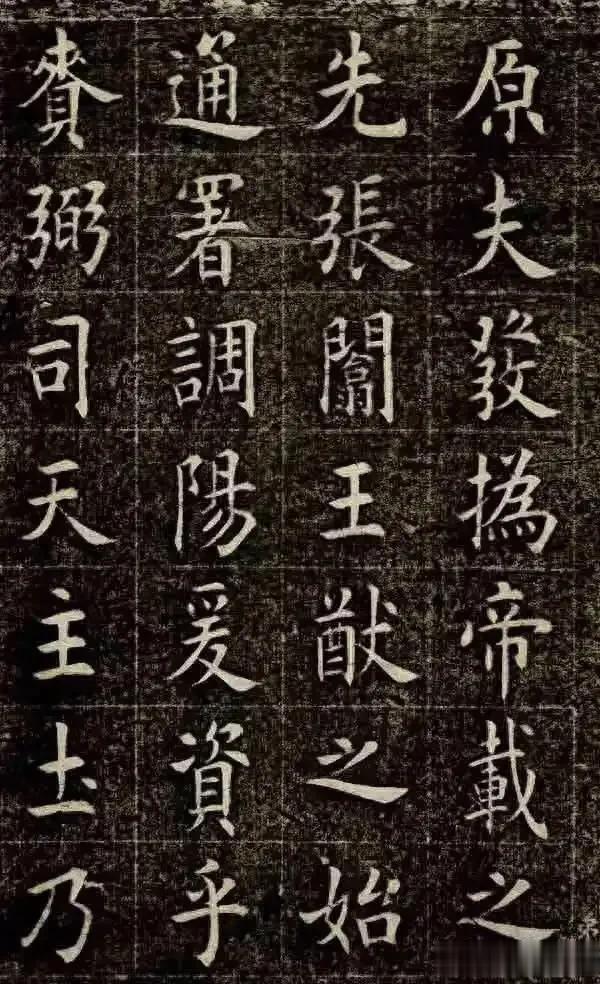 原夫發揚帝載之
先張闡王猷之始
通署調陽爰資乎
賚弼司天主土乃